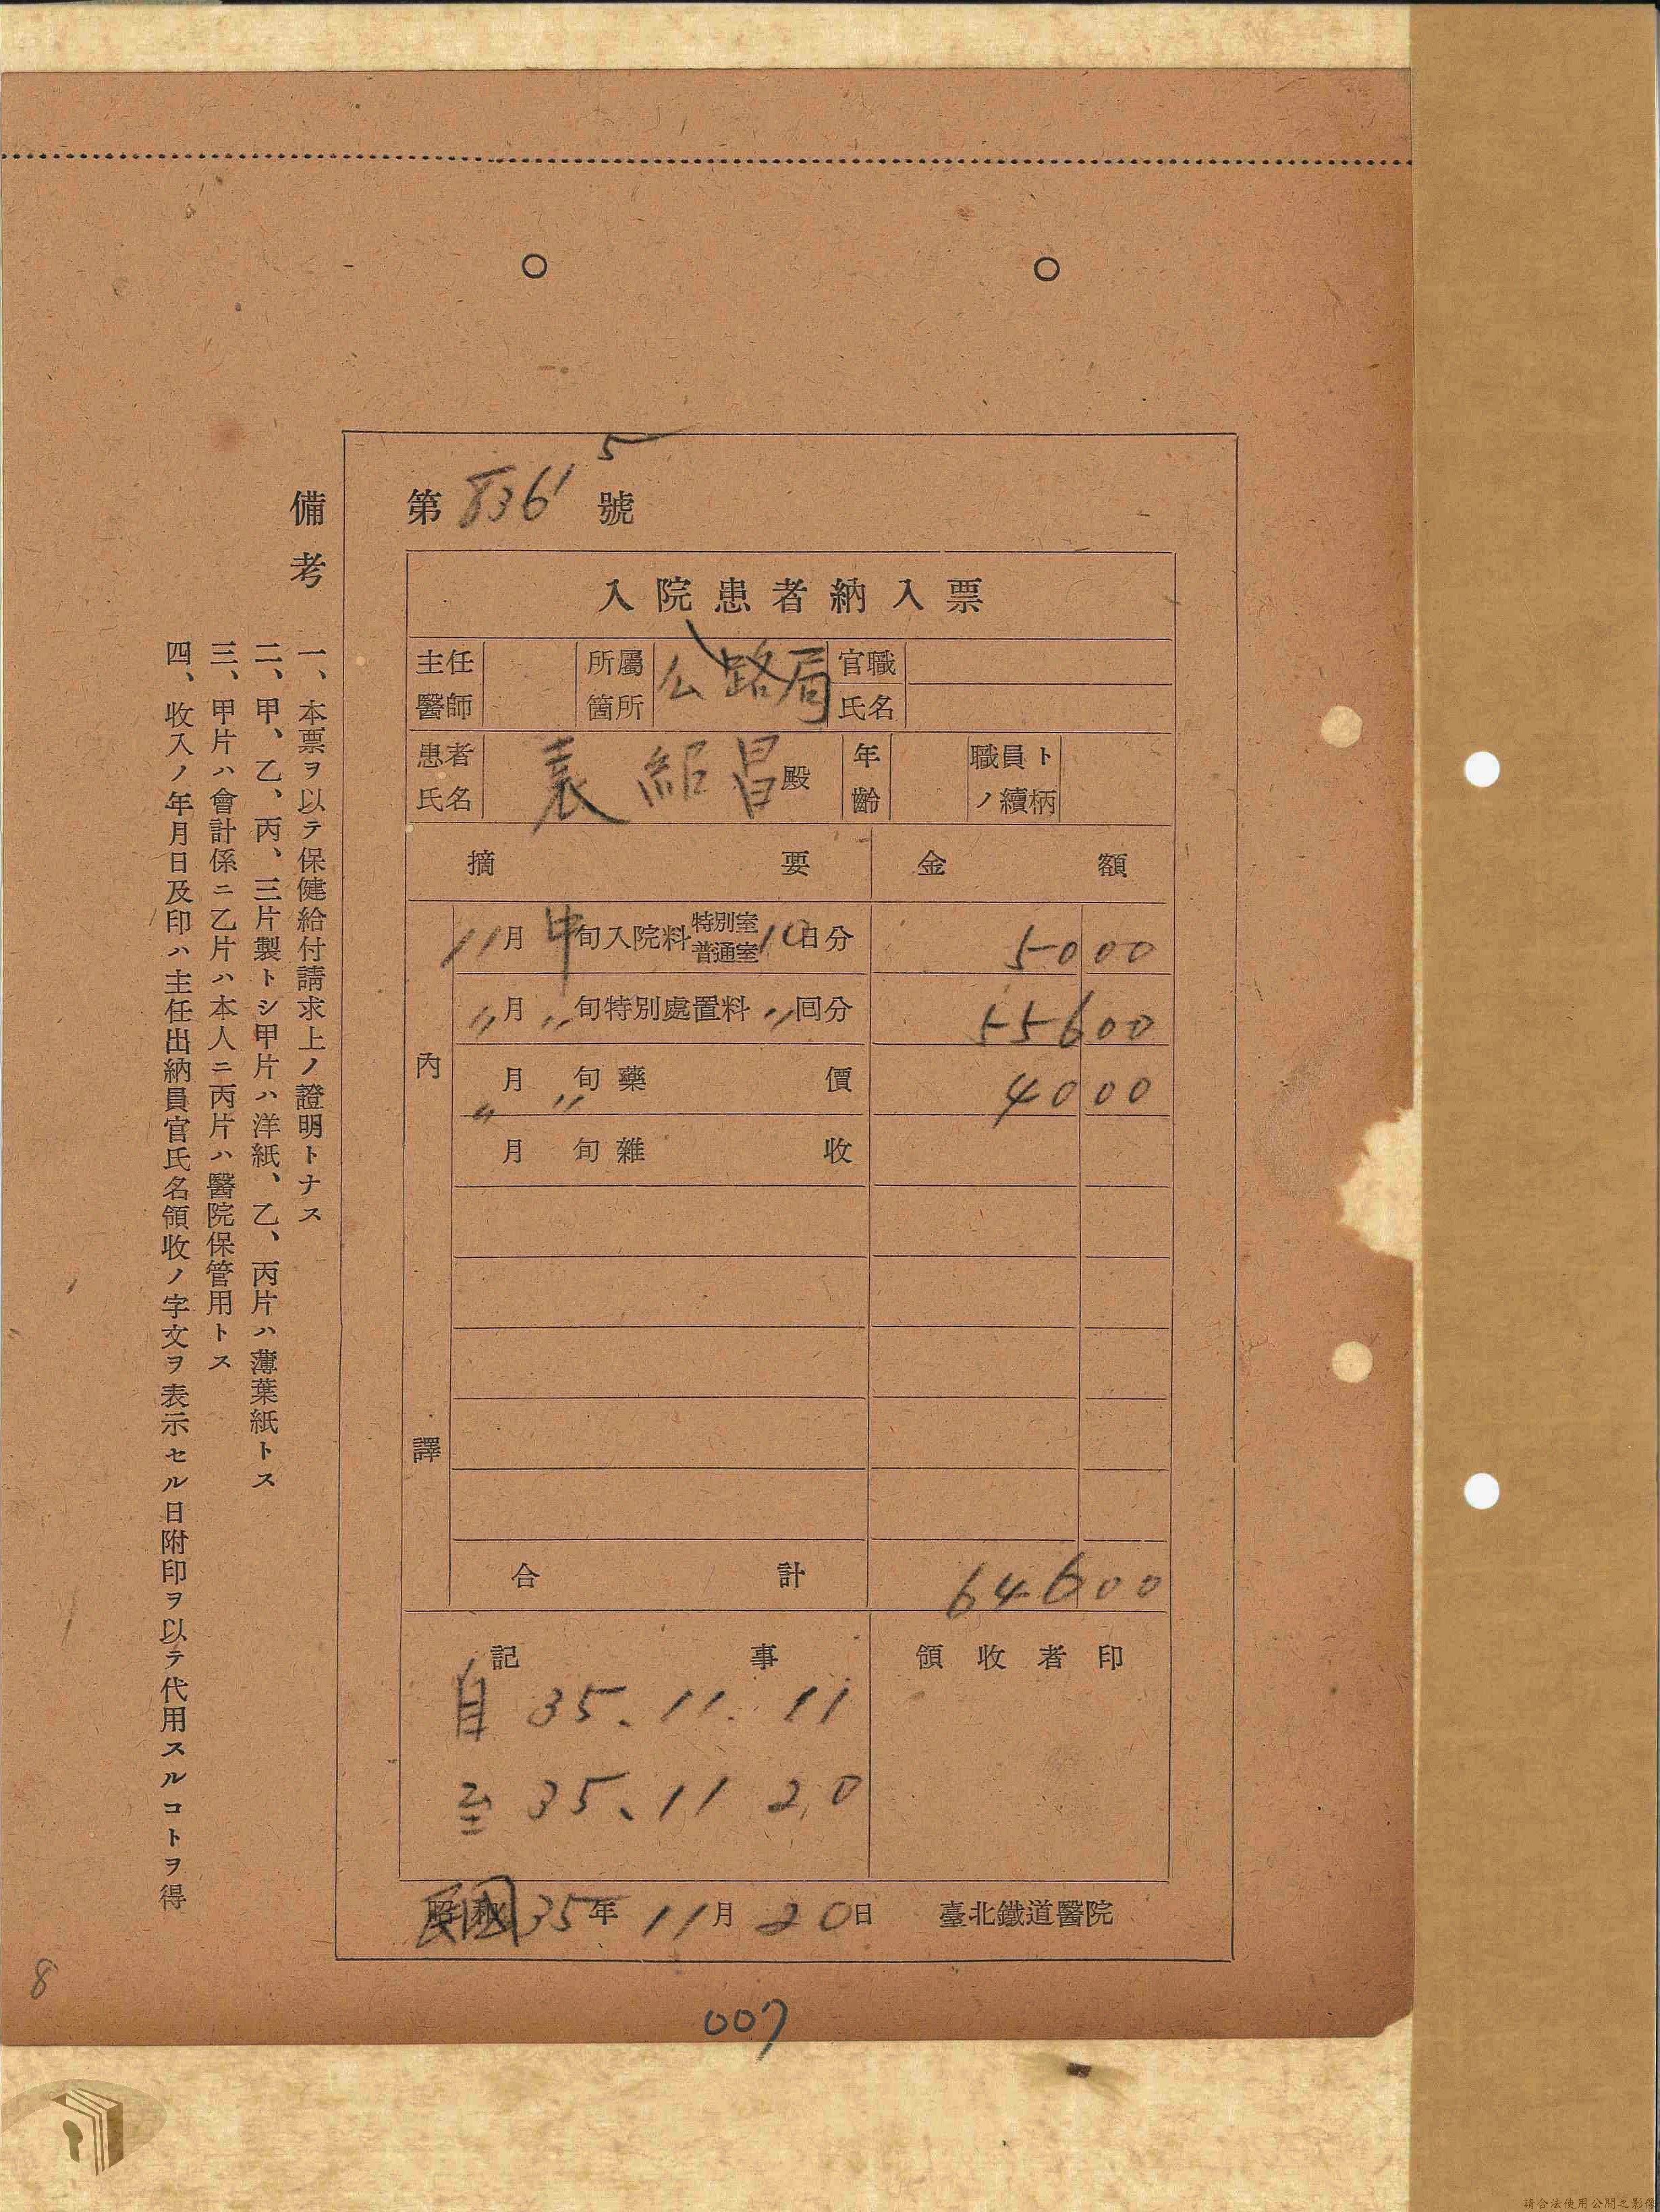 5
第 8361 號
入院患者納入票
主任醫師 所屬箇所 公路局 官職氏名
患者氏名 袁紹昌 殿 年齡 職員トノ續柄
摘要 金額
內譯
11月 中旬入院料 特別室 普通室 10日分 50 00
〃月 〃旬特別處置料 〃回分 556 00
〃月 〃旬藥價 40 00
月 旬雜收
合計 646 00
記事 領收者印
自 35、11. 11
至 35、11 20
民國35年11月20日 臺北鐵道醫院
備考
一、本票ヲ以テ保健給付請求上ノ證明トナス
二、甲、乙、丙、三片製トシ甲片ハ洋紙、乙、丙片ハ薄葉紙トス
三、甲片ハ會計係ニ乙片ハ本人ニ丙片ハ醫院保管用トス
四、收入ノ年月日及印ハ主任出納員官氏名領收ノ字文ヲ表示セル日附印ヲ以テ代用スルコトヲ得
8
007
請合法使用公開之影像